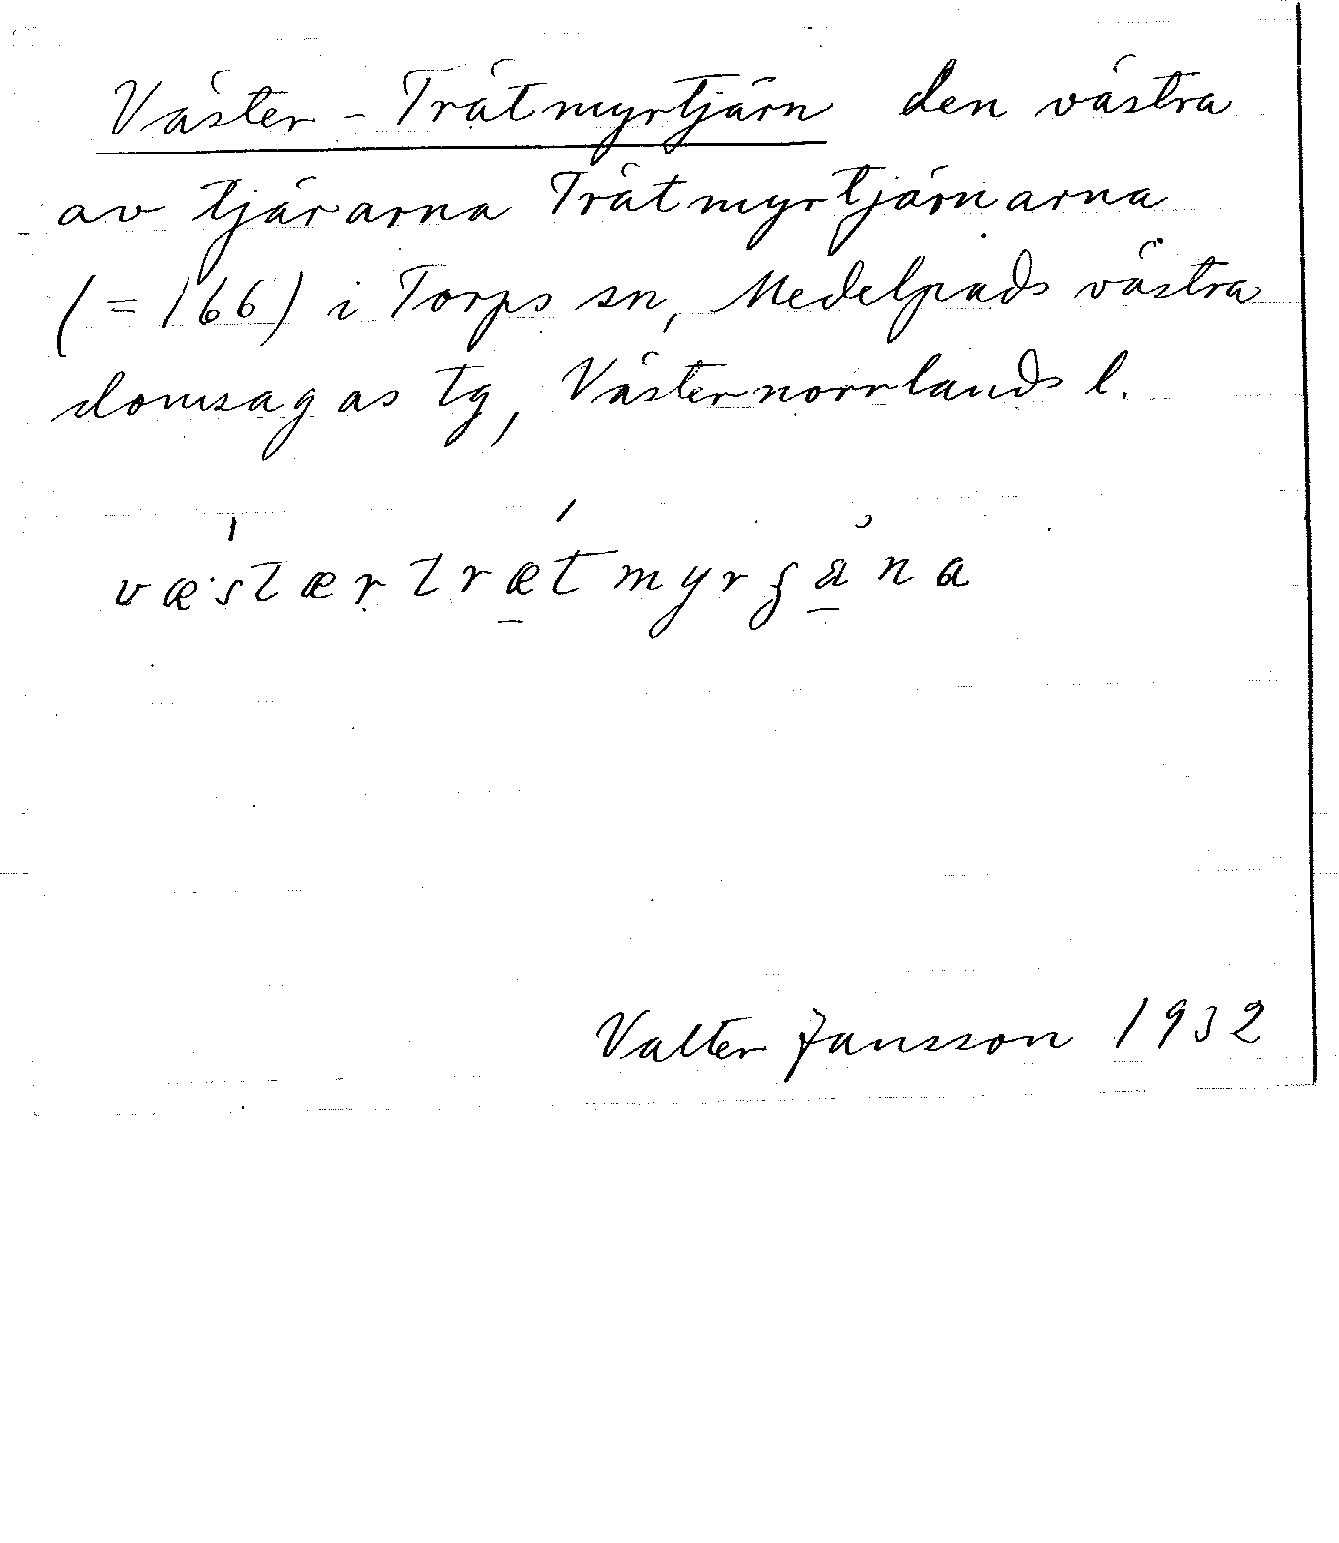 Väster-Trätmyrtjärn den västra
av tjärarna Trätmyrtjärnarna
(=166) i Torps sn, Medelpads västra
domsagas tg, Västernorrlands l.
væstærtrætmyrʂäna
Valter Jansson 1932